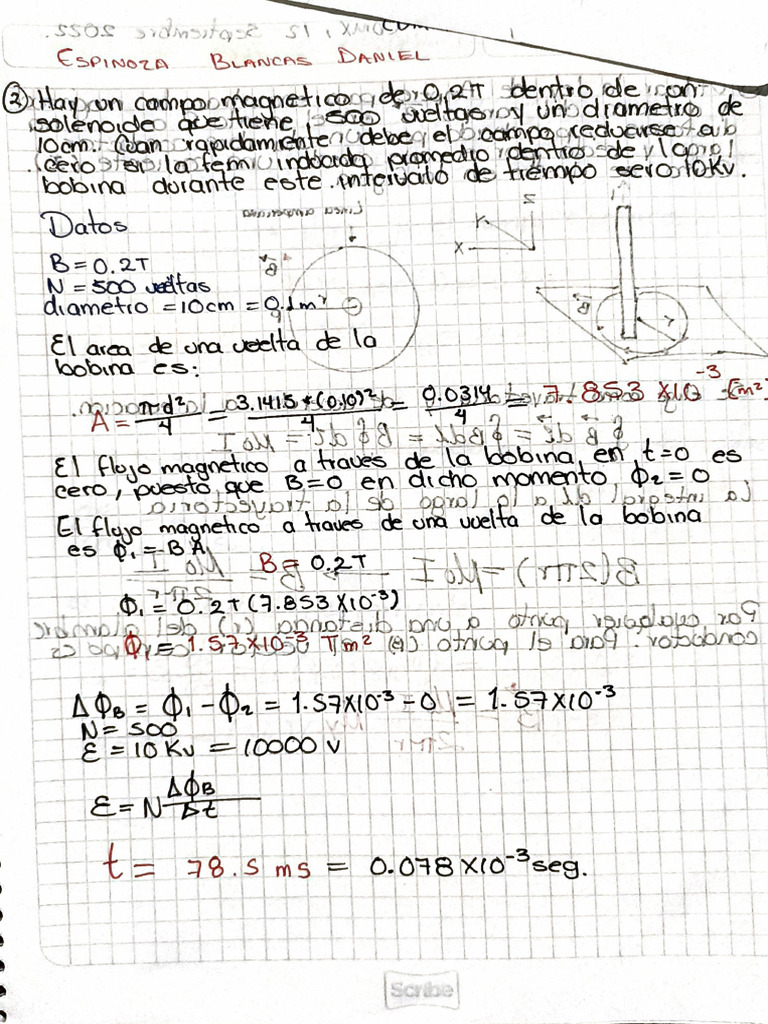 ESPINOZA BLANCAS DANIEL
② Hay un campo magnetico de 0,2π dentro de un
solenoide que tiene 500 vueltas y un diametro de
10cm. Cuan rapidamente debe el campo reducirse a
cero si la fem inducida promedio dentro de la
bobina durante este intervalo de tiempo sera 10Kv.
Datos
B = 0.2T
N = 500 vueltas
diametro = 10cm = 0.1m²
El area de una vuelta de la
bobina es:
A = πd²/4 = 3.1415*(0.10)²/4 = 0.0314/4 = 7.853 x10⁻³ [m²]
El flujo magnetico a traves de la bobina en t=0 es
cero, puesto que B=0 en dicho momento, ϕ₂=0
El flujo magnetico a traves de una vuelta de la bobina
es ϕ₁ = BA
B = 0.2T
ϕ₁ = 0.2T(7.853X10⁻³)
ϕ₁ = 1.57x10⁻³ Tm²
ΔϕB = ϕ₁ - ϕ₂ = 1.57X10⁻³ - 0 = 1.57X10⁻³
N = 500
Ɛ = 10 Kv = 10000 v
Ɛ = N ΔϕB/Δt
t = 78.5 ms = 0.078 X10⁻³ seg.
Scribe